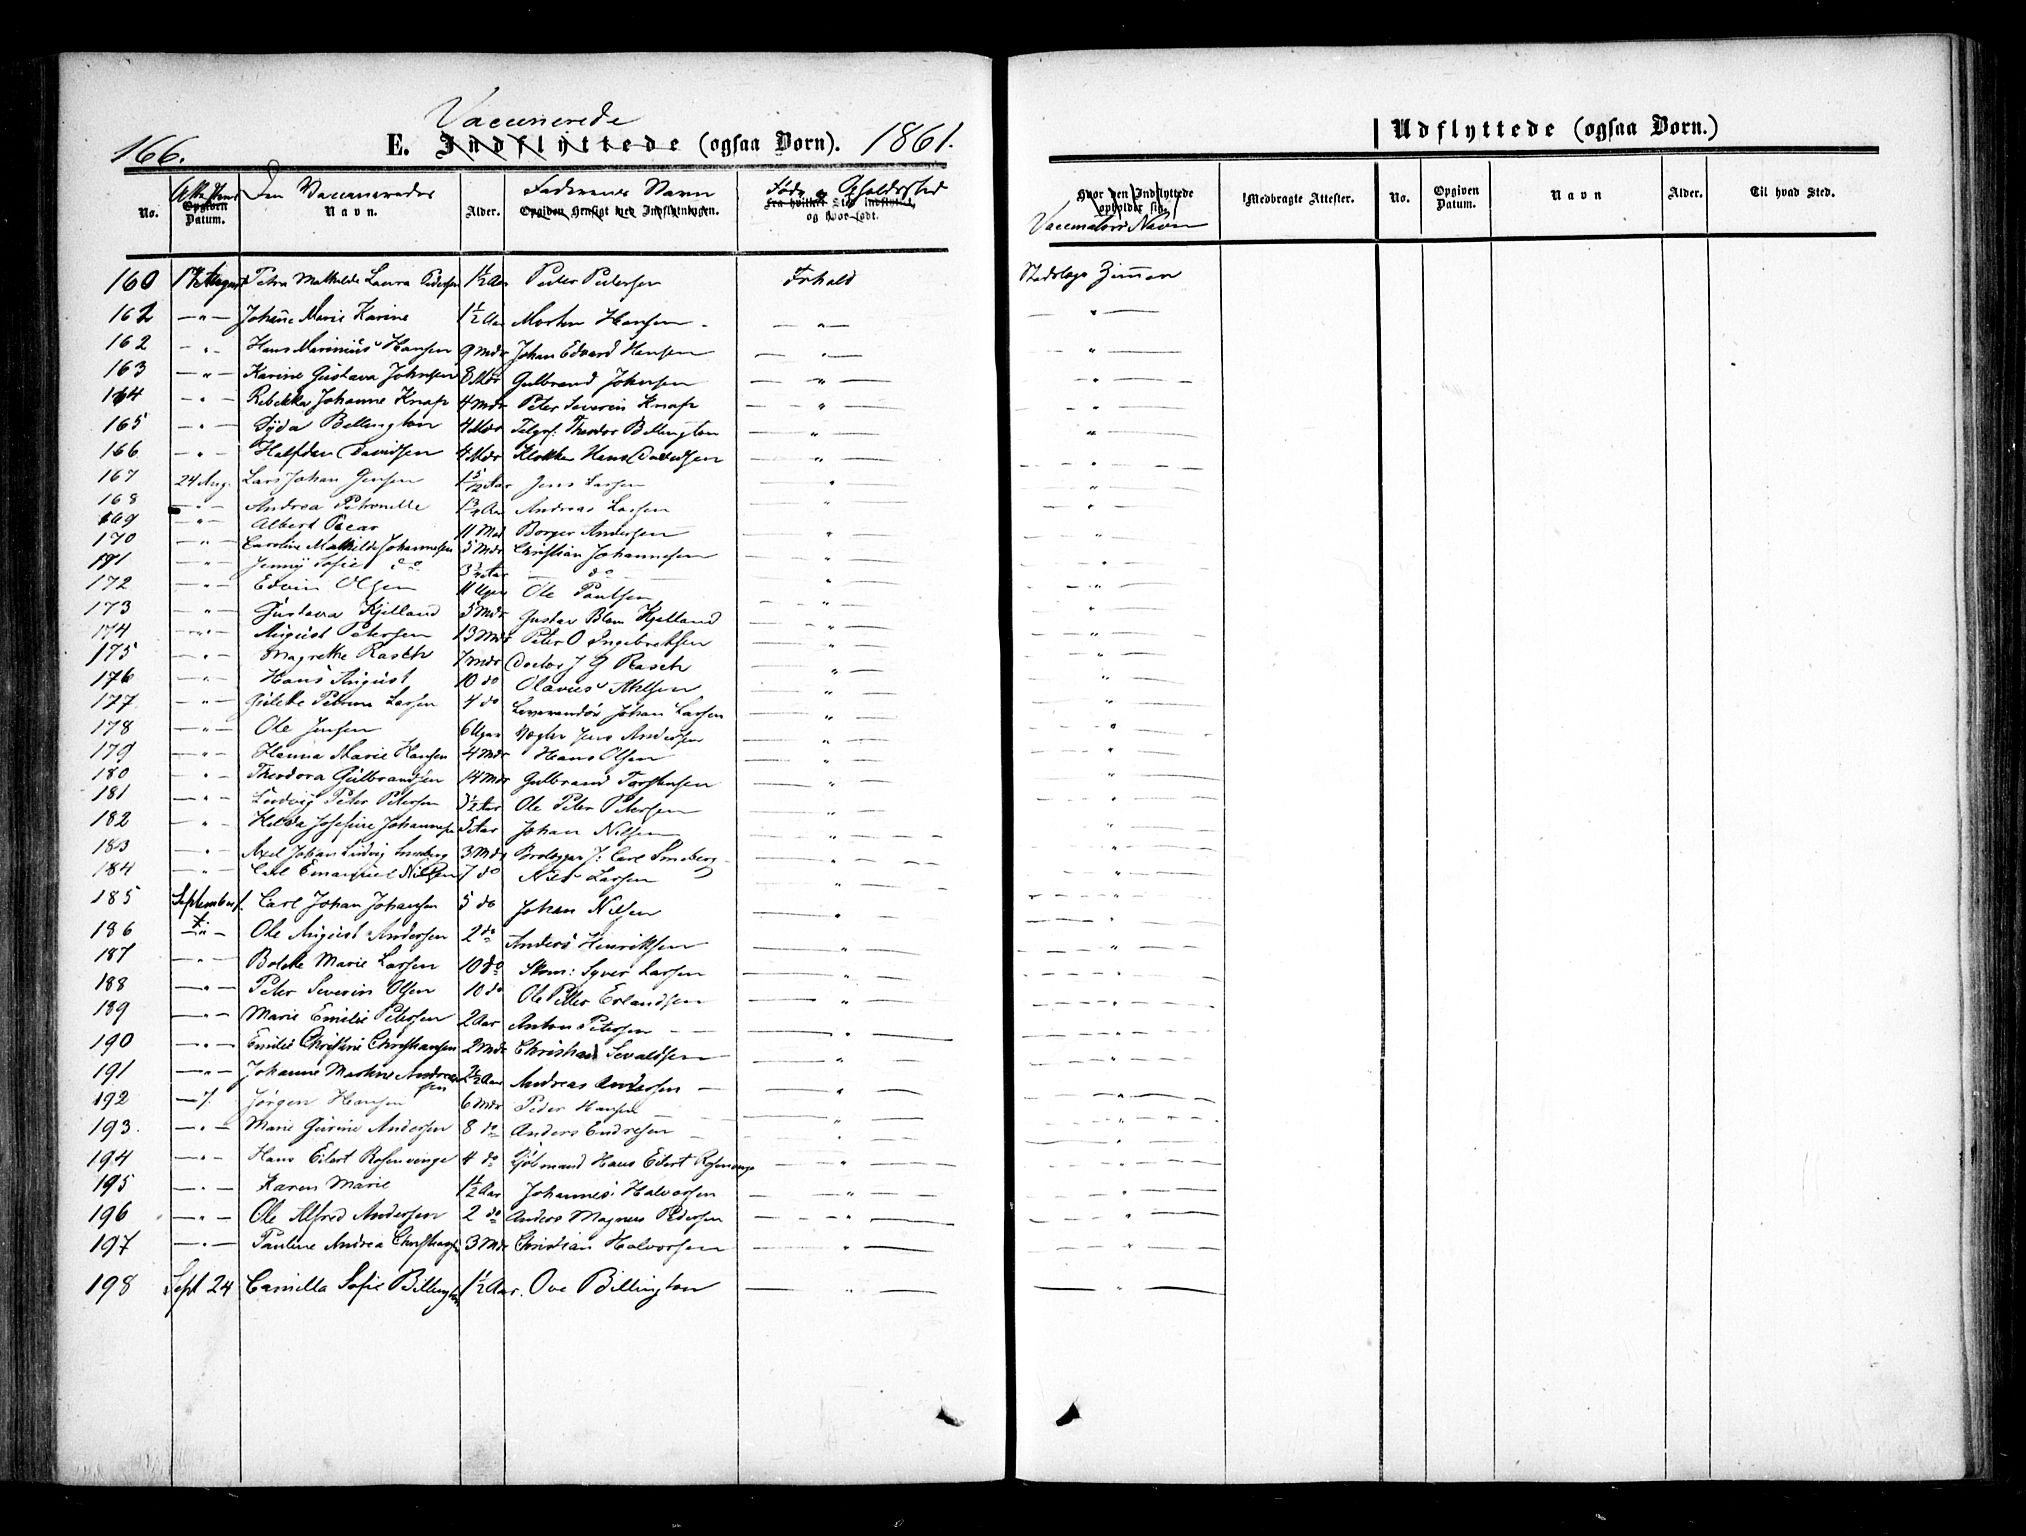 166.
Vaccinerede
E. Indflyttede (ogsaa Børn). 1861.
No. Attestens Opgiven Datum. Den Vaccineredes Navn. Alder. Faderens Navn Opgiven Hensigt med Indflytningen. Føde og Opholdssted Fra hvilket Sted indflyttet, og hvor født.
160 17 August Petra Mathilde Laura Pedersen 1½ Aar Peder Pedersen Frhald
162 — " — Johanne Marie Karine 1½ Aar Morten Hansen — " —
162 — " — Hans Marinius Hansen 9 Mdr Johan Edvard Hansen — " —
163 — " — Karine Gustava Johnsen 8 Mdr Gulbrand Johnsen — " —
164 — " — Rebekka Johanne Knap 4 Mdr Peter Severin Knap — " —
165 — " — Billington 4 Mdr Telgrf: Theodor Billington — " —
166 — " — Halfdan Davidsen 4 Mdr Klokker Hans Davidsen — " —
167 24 Aug. Lars Johan Jensen 1 5/12 Aar Jens Larsen — " —
168 — " — Andrea Petronelle Aar Andreas Larsen — " —
169 — " — Albert Oscar 11 Mdr Borger Andersen — " —
170 — " — Caroline Mathilde Johannesen 5 Mdr Christian Johannesen — " —
171 — " — Jenny Sofie do Aar — do — — " —
172 — " — Edvin Olsen 11 Uger Ole Paulsen — " —
173 — " — Gustava Kjelland 5 Mdr Gustav Blom Kjelland — " —
174 — " — August Petersen 13 Mdr Peter O Ingebretsen — " —
175 — " — Magrethe Rasch 7 Mdr Doctor J G Rasch — " —
176 — " — Hans August 10 do Olavus Nilsen — " —
177 — " — Petrine Larsen 4 do Leverandør Johan Larsen — " —
178 — " — Ole Jensen 6 Uger Vægter Jens Andersen — " —
179 — " — Hanna Marie Hansen 4 Mdr Hans Olsen — " —
180 — " — Theodora Gulbrandsen 14 Mdr Gulbrand Torstensen — " —
181 — " — Ludvig Peter Petersen Aar Ole Peter Petersen — " —
182 — " — Hilda Josefine Johannesen 5 Aar Johan Nilsen — " —
183 — " — Axel Johan Ludvig 3 Mdr Brolægger J: Carl — " —
184 — " — Carl Emanuel Nilsen 7 do Nils Larsen — " —
185 September Carl Johan Johansen 5 do Johan Nilsen — " —
186 — " — Ole August Andersen 2 do Anders Henriksen — " —
187 — " — Bolette Marie Larsen 10 do Skom: Syver Larsen — " —
188 — " — Peter Severin Olsen 10 do Ole Petter Erlandsen — " —
189 — " — Marie Emilie Petersen 2 Aar Anton Petersen — " —
190 — " — Emilie Christine Christiansen 2 Mdr Christian Sevaldsen — " —
191 — " — Johanne Martine Andreasen 2½ Aar Andreas Andersen — " —
192 Jørgen Hansen 6 Mdr Peder Hansen — " —
193. — " — Marie Gurine Andersen 8 do Anders Endresen — " —
194 — " — Hans Eilert Rosenvinge 4 do Sjømand Hans Eilert Rosenvinge — " —
195 — " — Karen Marie 1½ Aar Johannes Halvorsen — " —
196 — " — Ole Alfred Andersen 2 do Anders Magnus Pedersen — " —
197 — " — Pauline Andrea Christiansen 3 Mdr Christian Halvorsen — " —
198 Sept 24 Camilla Sofie Billington 1½ Aar. Ove Billington — " —
Udflyttede (ogsaa Børn.)
Hvor den Indflyttede opholder sig. Vaccinatørs Navn Medbragte Attester. No. Opgiven Datum. Navn Alder. Til hvad Sted.
Stadslæge